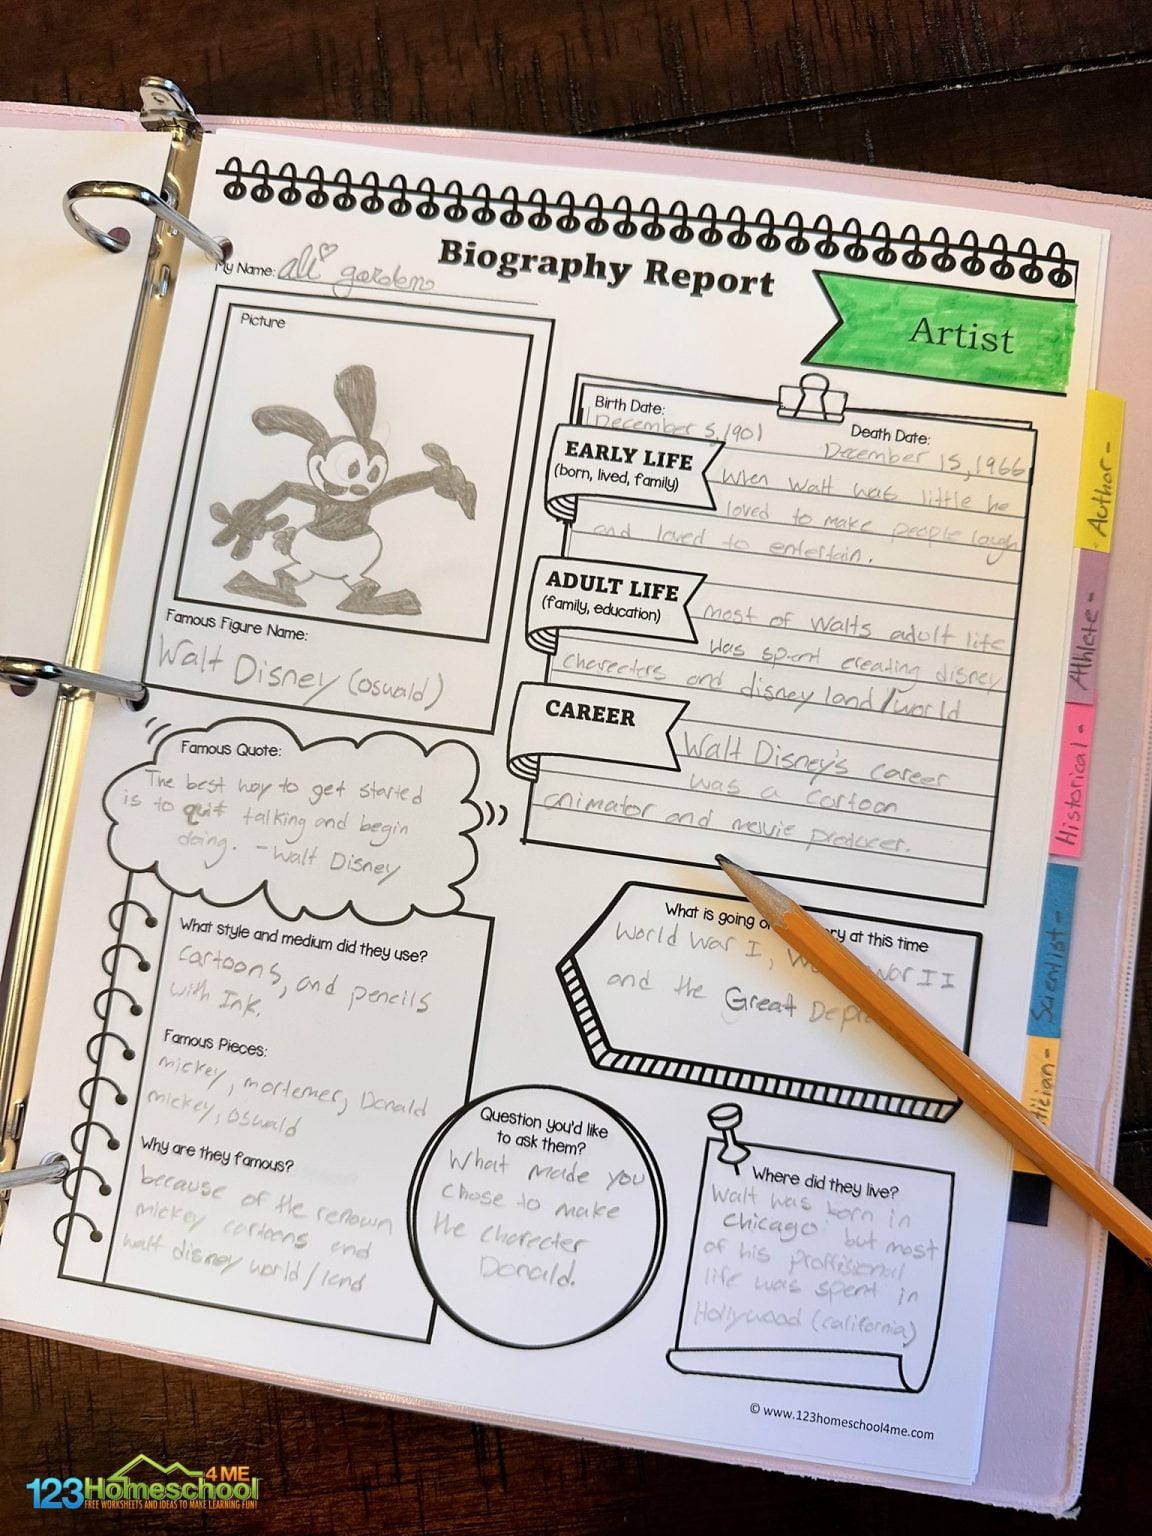 Biography Report
My Name: ali garden
Artist
Picture
Famous Figure Name:
Walt Disney (oswald)
Birth Date:
December 5, 1901
Death Date:
December 15, 1966
EARLY LIFE
(born, lived, family)
When Walt was little he
loved to make people laugh
and loved to entertain.
ADULT LIFE
(family, education)
most of Walts adult life
was spent creating disney
charecters and disney land/world
CAREER
Walt Disney's career
was a cartoon
animator and movie producer.
Famous Quote:
The best way to get started
is to quit talking and begin
doing. - Walt Disney
What style and medium did they use?
Cartoons, and pencils
with Ink.
Famous Pieces:
mickey, mortemer, Donald
mickey, oswald
Why are they famous?
because of the renown
mickey cartoons and
walt disney world/land
What is going at this time
World War I, War II
and the Great
Question you'd like
to ask them?
What made you
chose to make
the charecter
Donald.
Where did they live?
Walt was born in
chicago but most
of his proffisional
life was spent in
Hollywood (california)
© www.123homeschool4me.com
Author-
Athlete-
Historical-
Scientist-
123 Homeschool 4 ME
FREE WORKSHEETS AND IDEAS TO MAKE LEARNING FUN!